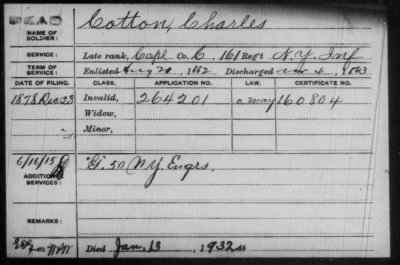 DEAD
NAME OF SOLDIER: Cotton, Charles
SERVICE: Late rank, Capt Co. C, 161 Reg't N.Y. Inf
TERM OF SERVICE: Enlisted Aug 1862 Discharged 4, 1863
DATE OF FILING. CLASS. APPLICATION NO. LAW. CERTIFICATE NO.
1878 Dec 23 Invalid, 264201 160804
Widow,
Minor,
6/16/15 "G. 50 N.Y. Engrs.
ADDITIONAL SERVICES:
REMARKS:
Died Jan. 13, 1932